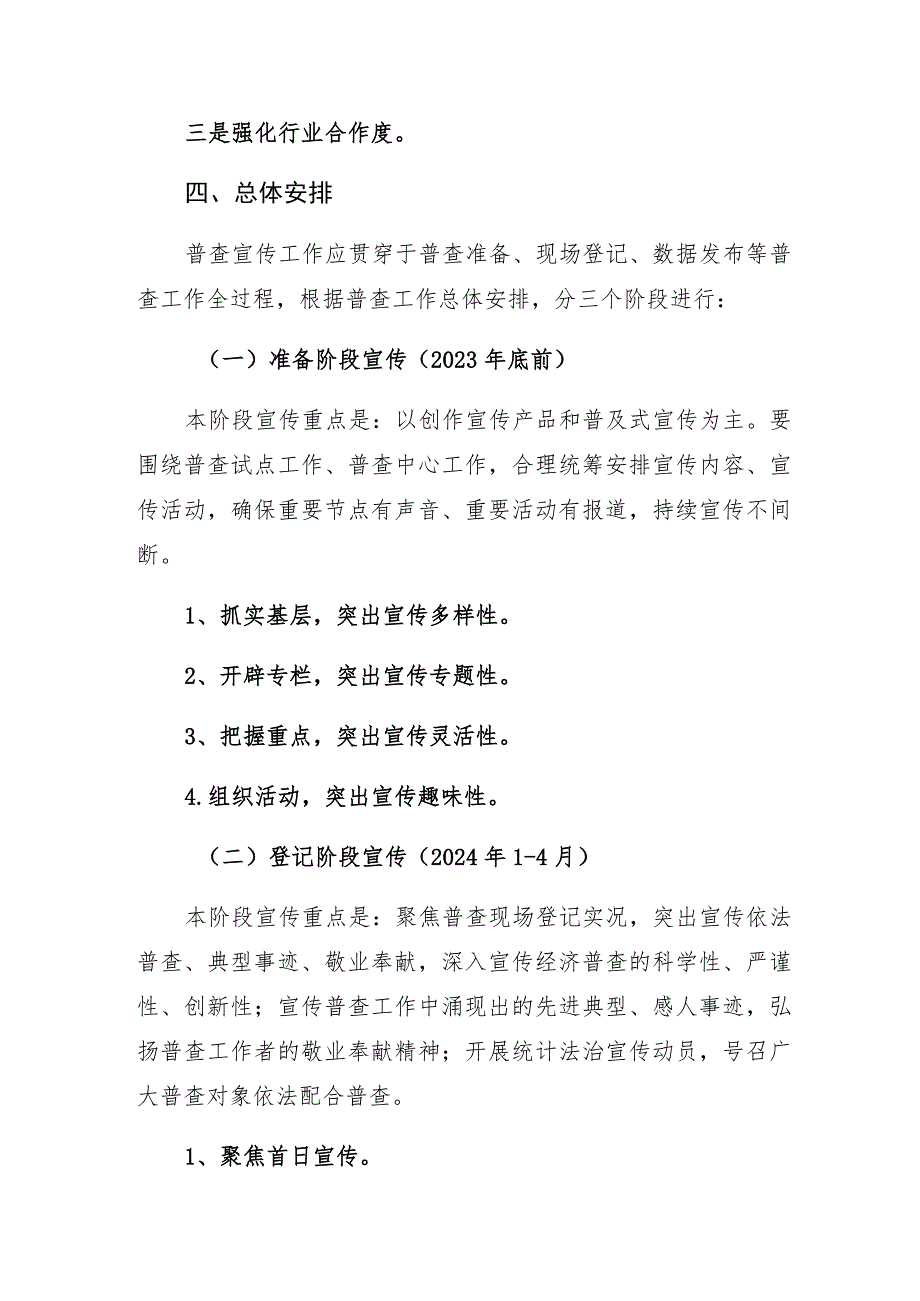 三是强化行业合作度。
四、总体安排
普查宣传工作应贯穿于普查准备、现场登记、数据发布等普
查工作全过程，根据普查工作总体安排，分三个阶段进行：
（一）准备阶段宣传（2023年底前）
本阶段宣传重点是：以创作宣传产品和普及式宣传为主。要
围绕普查试点工作、普查中心工作，合理统筹安排宣传内容、宣
传活动，确保重要节点有声音、重要活动有报道，持续宣传不间
断。
1、抓实基层，突出宣传多样性。
2、开辟专栏，突出宣传专题性。
3、把握重点，突出宣传灵活性。
4.组织活动，突出宣传趣味性。
（二）登记阶段宣传（2024年1-4月）
本阶段宣传重点是：聚焦普查现场登记实况，突出宣传依法
普查、典型事迹、敬业奉献，深入宣传经济普查的科学性、严谨
性、创新性；宣传普查工作中涌现出的先进典型、感人事迹，弘
扬普查工作者的敬业奉献精神；开展统计法治宣传动员，号召广
大普查对象依法配合普查。
1、聚焦首日宣传。